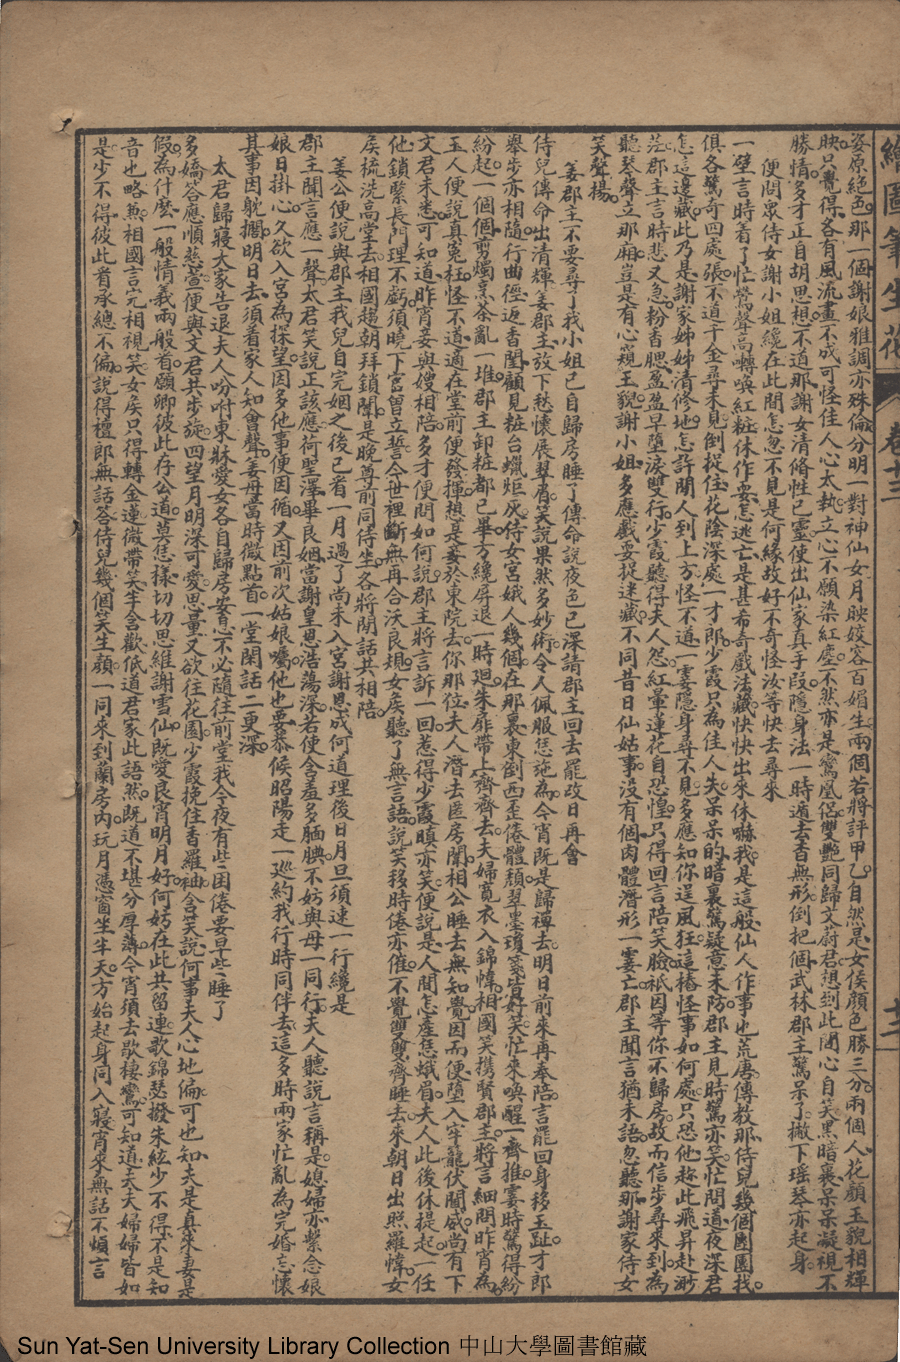 繪圖筆生花 卷十三 十二
姿原絕色那一個謝娘雅調亦殊倫分明一對神仙女月映姣容百媚生兩個若將評甲乙自然是女侯顏色勝三分兩個人花顏玉貌相輝
映只覺得各有風流畫不成可怪佳人心太執立心不願染紅塵不然亦是鸞凰侶雙艷同歸文蔚君想到此間心自笑黑暗裏呆呆凝視不
勝情多才正自胡思想不道那謝女清脩性已靈使出仙家真手段隱身法一時遁去杳無形倒把個武林郡主驚呆了撇下瑤琴亦起身
便問眾侍女謝小姐纔在此間怎忽不見是何緣故好不奇怪汝等快去尋來
一壁言時着了忙鶯聲高囀喚紅粧休作耍怎逃亡是甚希奇戲法藏快快出來休嚇我是這般仙人作事也荒唐傳教那侍兒幾個團團找
俱各驚奇四處張不道千金尋未見倒捉住花陰深處一才郎少霞只為佳人失呆呆的暗裏驚疑意未防郡主見時驚亦笑忙問道夜深君
怎這邊藏此乃是謝家姊姊清修地怎許閒人到上方怪不道一霎隱身尋不見多應知你逞風狂這樁怪事如何處只恐他趂此飛昇赴渺
茫郡主言時悲又急粉香腮盈盈早墮淚雙行少霞聽得夫人怨紅暈蓮花自恐惶只得回言陪笑臉祇因等你不歸房故而信步尋來到為
聽琴聲立那廂豈是有心窺玉貌謝小姐多應戲耍捉迷藏不同昔日仙姑事沒有個肉體潛形一霎亡郡主聞言猶未語忽聽那謝家侍女
笑聲揚
姜郡主不要尋了我小姐已自歸房睡了傳命說夜色已深請郡主回去罷改日再會
侍兒傳命出清輝姜郡主放下愁懷展翠眉笑說果然多妙術令人佩服恁施為今宵既是歸禪去明日前來再奉陪言罷回身移玉趾才郎
舉步亦相隨行曲徑返香閨顧見粧台蠟炬灰侍女宮娥人幾個在那裏東倒西歪倦體頹翠墨瓊箋皆好笑忙來喚醒一齊推霎時驚得紛
紛起一個個剪燭烹茶亂一堆郡主卸粧都已畢方纔屏退一時廻朱扉帶上齊齊去夫婦寬衣入錦幃相國笑携賢郡主將言細問昨宵為
玉人便說真冤枉怪不道適在堂前便發揮想是妾於東院去你那位夫人潛去匿房闈相公睡去無知覺因而便墮入牢籠伏閫威尚有下
文君未悉可知道昨宵妾與嫂相陪多才便問如何說郡主將言訴一回惹得少霞瞋亦笑便說是人間怎產恁娥眉夫人此後休提起一任
他鎖縶長門理不虧須曉下官曾立誓今世裡斷無再合沃良規女矦聽了無言語說笑移時倦亦催不覺雙雙齊睡去來朝日出照羅幃女
矦梳洗高堂去相國趨朝拜鎖闈是晚尊前同侍坐各將閒話共相陪
姜公便說與郡主我兒自完姻之後已看一月過了尚未入宮謝恩成何道理後日月旦須速一行纔是
郡主聞言應一聲太君笑說正該應荷聖澤畢良姻當謝皇恩浩蕩深若使含羞多腼腆不妨與母一同行夫人聽說言稱是媳婦亦繫念娘
娘日掛心久欲入宮為探望因多他事便因循又因前次姑娘囑他也要恭候昭陽走一巡約我行時同伴去這多時兩家忙亂為完婚怎懷
其事因躭擱明日去須着家人知會聲姜母當時微點首一堂閑話二更深
太君歸寢大家告退夫人吩咐東牀愛女各自歸房安息不必隨往前堂我今夜有些困倦要早些睡了
多嬌答應順慈萱便與文君共步旋四望月明深可愛思量又欲往花園少霞挽住香羅袖含笑說何事夫人心地偏可也知夫是真來妻是
假為什麽一般情義兩般看願卿彼此存公道莫恁樣切切思維謝雲仙既愛良宵明月好何妨在此共留連歌錦瑟撥朱絃少不得不是知
音也略兼相國言完相視笑女矦只得轉金蓮微帶笑半含歡低道君家此語然既道不堪分厚薄今宵須去歇棲鸞可知道夫夫婦婦皆如
是少不得彼此看承總不偏說得檀郎無話答侍兒幾個笑生顏一同來到蘭房內玩月憑窗坐半天方始起身同入寢宵來無話不煩言
Sun Yat-Sen University Library Collection 中山大學圖書館藏